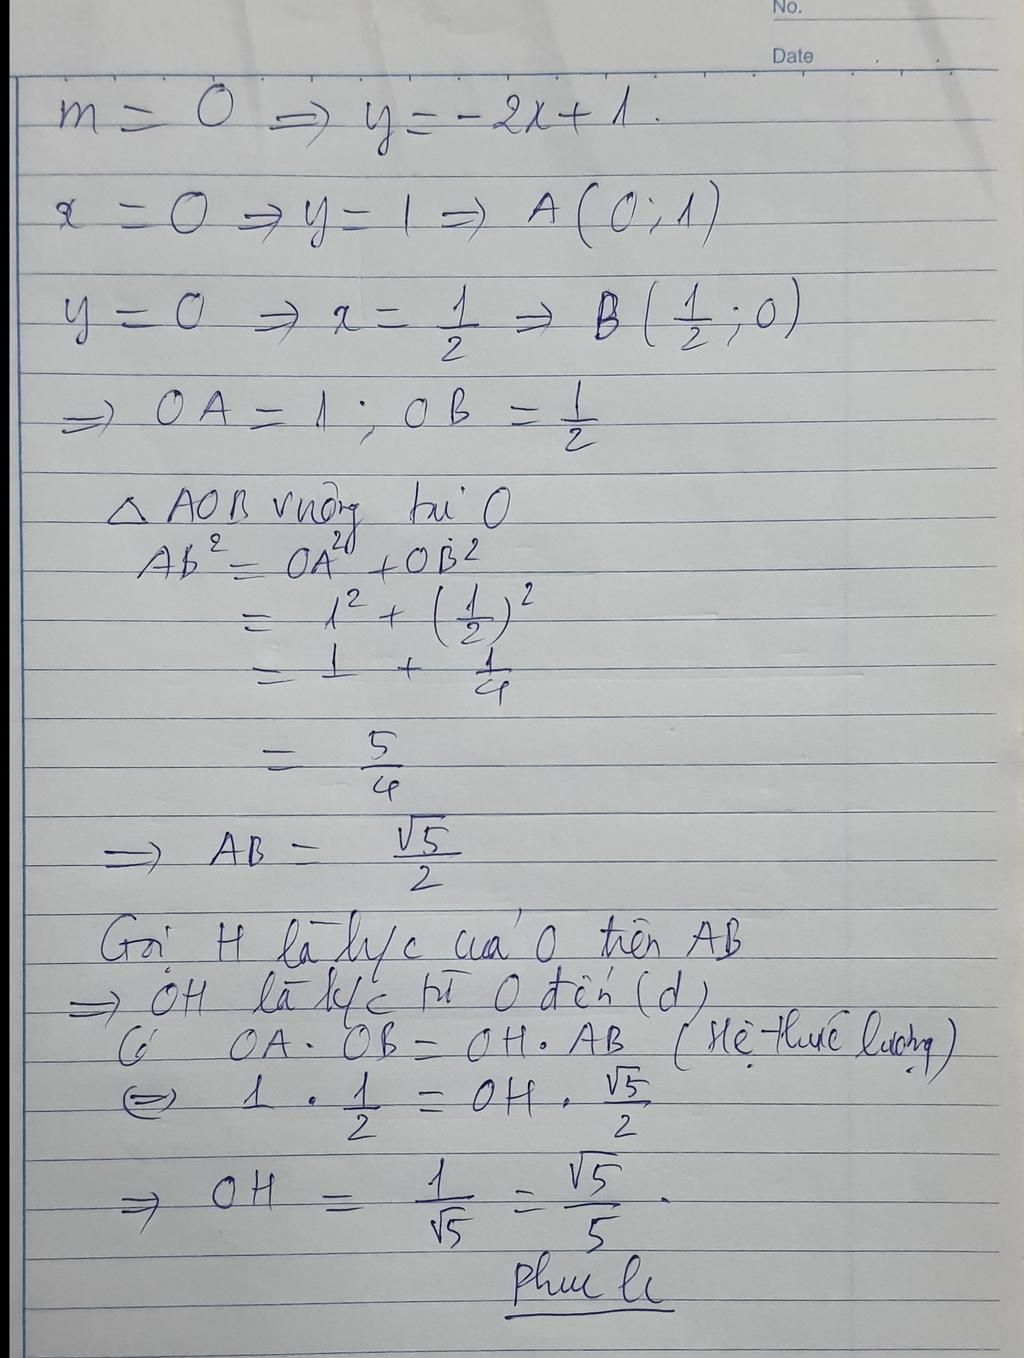 No.
Date
m = 0 => y = -2x + 1.
x = 0 => y = 1 => A(0;1)
y = 0 => x = 1/2 => B(1/2;0)
=> OA = 1; OB = 1/2
△ AOB vuông tại O
AB² = OA² + OB²
= 1² + (1/2)²
= 1 + 1/4
= 5/4
=> AB = √5/2
Gọi H là h/c của O trên AB
=> OH là k/c từ O đến (d)
Có OA . OB = OH . AB (Hệ thức lượng)
<=> 1 . 1/2 = OH . √5/2
=> OH = 1/√5 = √5/5 .